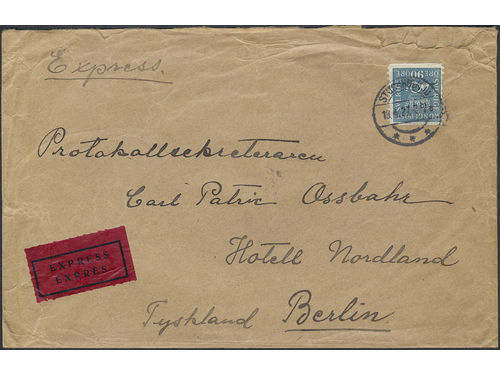 Express.
90 ÖRE
SVERIGE
Protokollsekreteraren
Carl Patric Ossbahr
Hotell Nordland
EXPRESS
EXPRÈS
Tyskland Berlin.